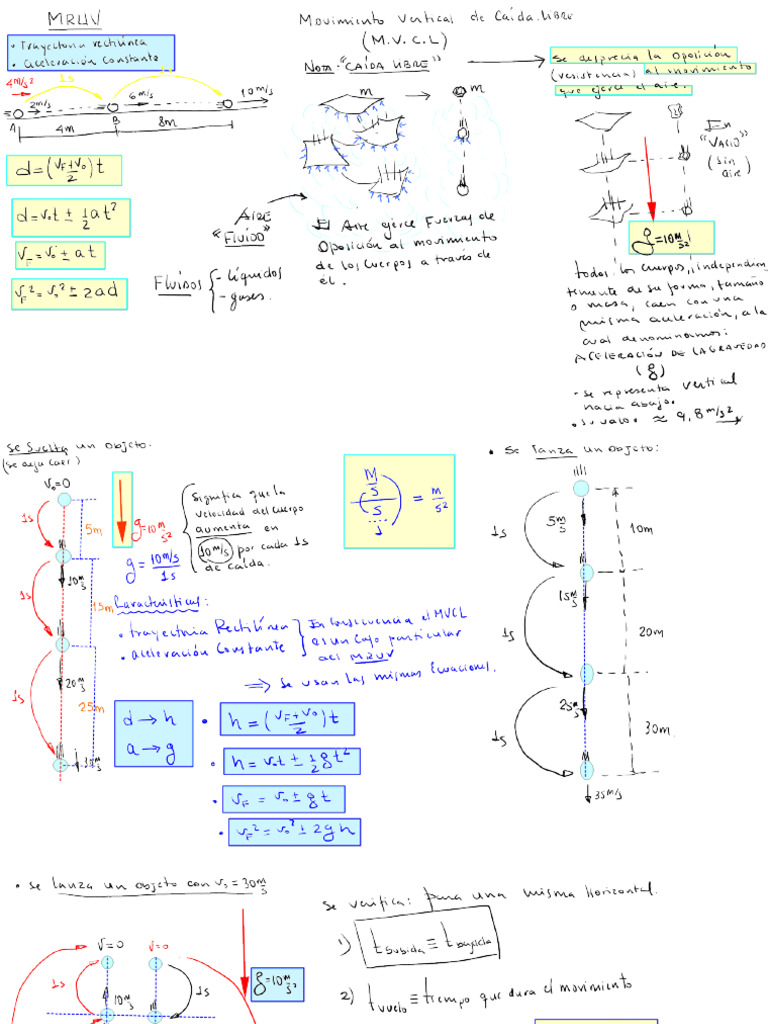 MRUV
• Trayectoria rectilínea
• Aceleración Constante
4m/s²
1s
1s
2m/s
6m/s
10m/s
A
B
4m
8m
d = (VF+V0/2) t
d = v0t ± 1/2 at²
VF = v0 ± at
VF² = v0² ± 2ad
Movimiento Vertical de Caída Libre
(M.V.C.L)
Nota: "CAÍDA LIBRE"
m
m
AIRE
"FLUIDO"
Fluidos { - líquidos
- gases.
El Aire ejerce Fuerzas de
Oposición al movimiento
de los cuerpos a través de
él.
Se desprecia la oposición
(resistencia) al movimiento
que ejerce el aire.
En
"VACIO"
(sin
aire)
g=10 m/s²
todos los cuerpos, independien
temente de su forma, tamaño
o masa, caen con una
misma aceleración, a la
cual denominamos:
ACELERACIÓN DE LA GRAVEDAD
(g)
- se representa vertical
hacia abajo.
• su valor ≈ 9,8 m/s²
Se Suelta un objeto.
(se deja caer)
V0=0
1s
5m
10 m/s
1s
15m
20 m/s
1s
25m
30 m/s
g=10 m/s²
g = 10m/s / 1s
Significa que la
velocidad del cuerpo
aumenta en
10m/s por cada 1s
de caída.
M/s / s/1 = m/s²
Características:
• trayectoria Rectilínea
• aceleración Constante
En consecuencia el MVCL
es un caso particular
del MRUV
⇒ Se usan las mismas Ecuaciones.
d → h
a → g
• h = (VF+V0/2) t
• h = v0t ± 1/2 gt²
• VF = v0 ± gt
• VF² = v0² ± 2gh
• Se lanza un objeto:
1s
5 m/s
10m
15 m/s
1s
20m
25 m/s
1s
30m.
35m/s
• se lanza un objeto con v0 = 30 m/s
V=0
V=0
1s
10 m/s
1s
g=10 m/s²
Se verifica: para una misma Horizontal.
1) t subida ≡ t bajada
2) t vuelo ≡ tiempo que dura el movimiento